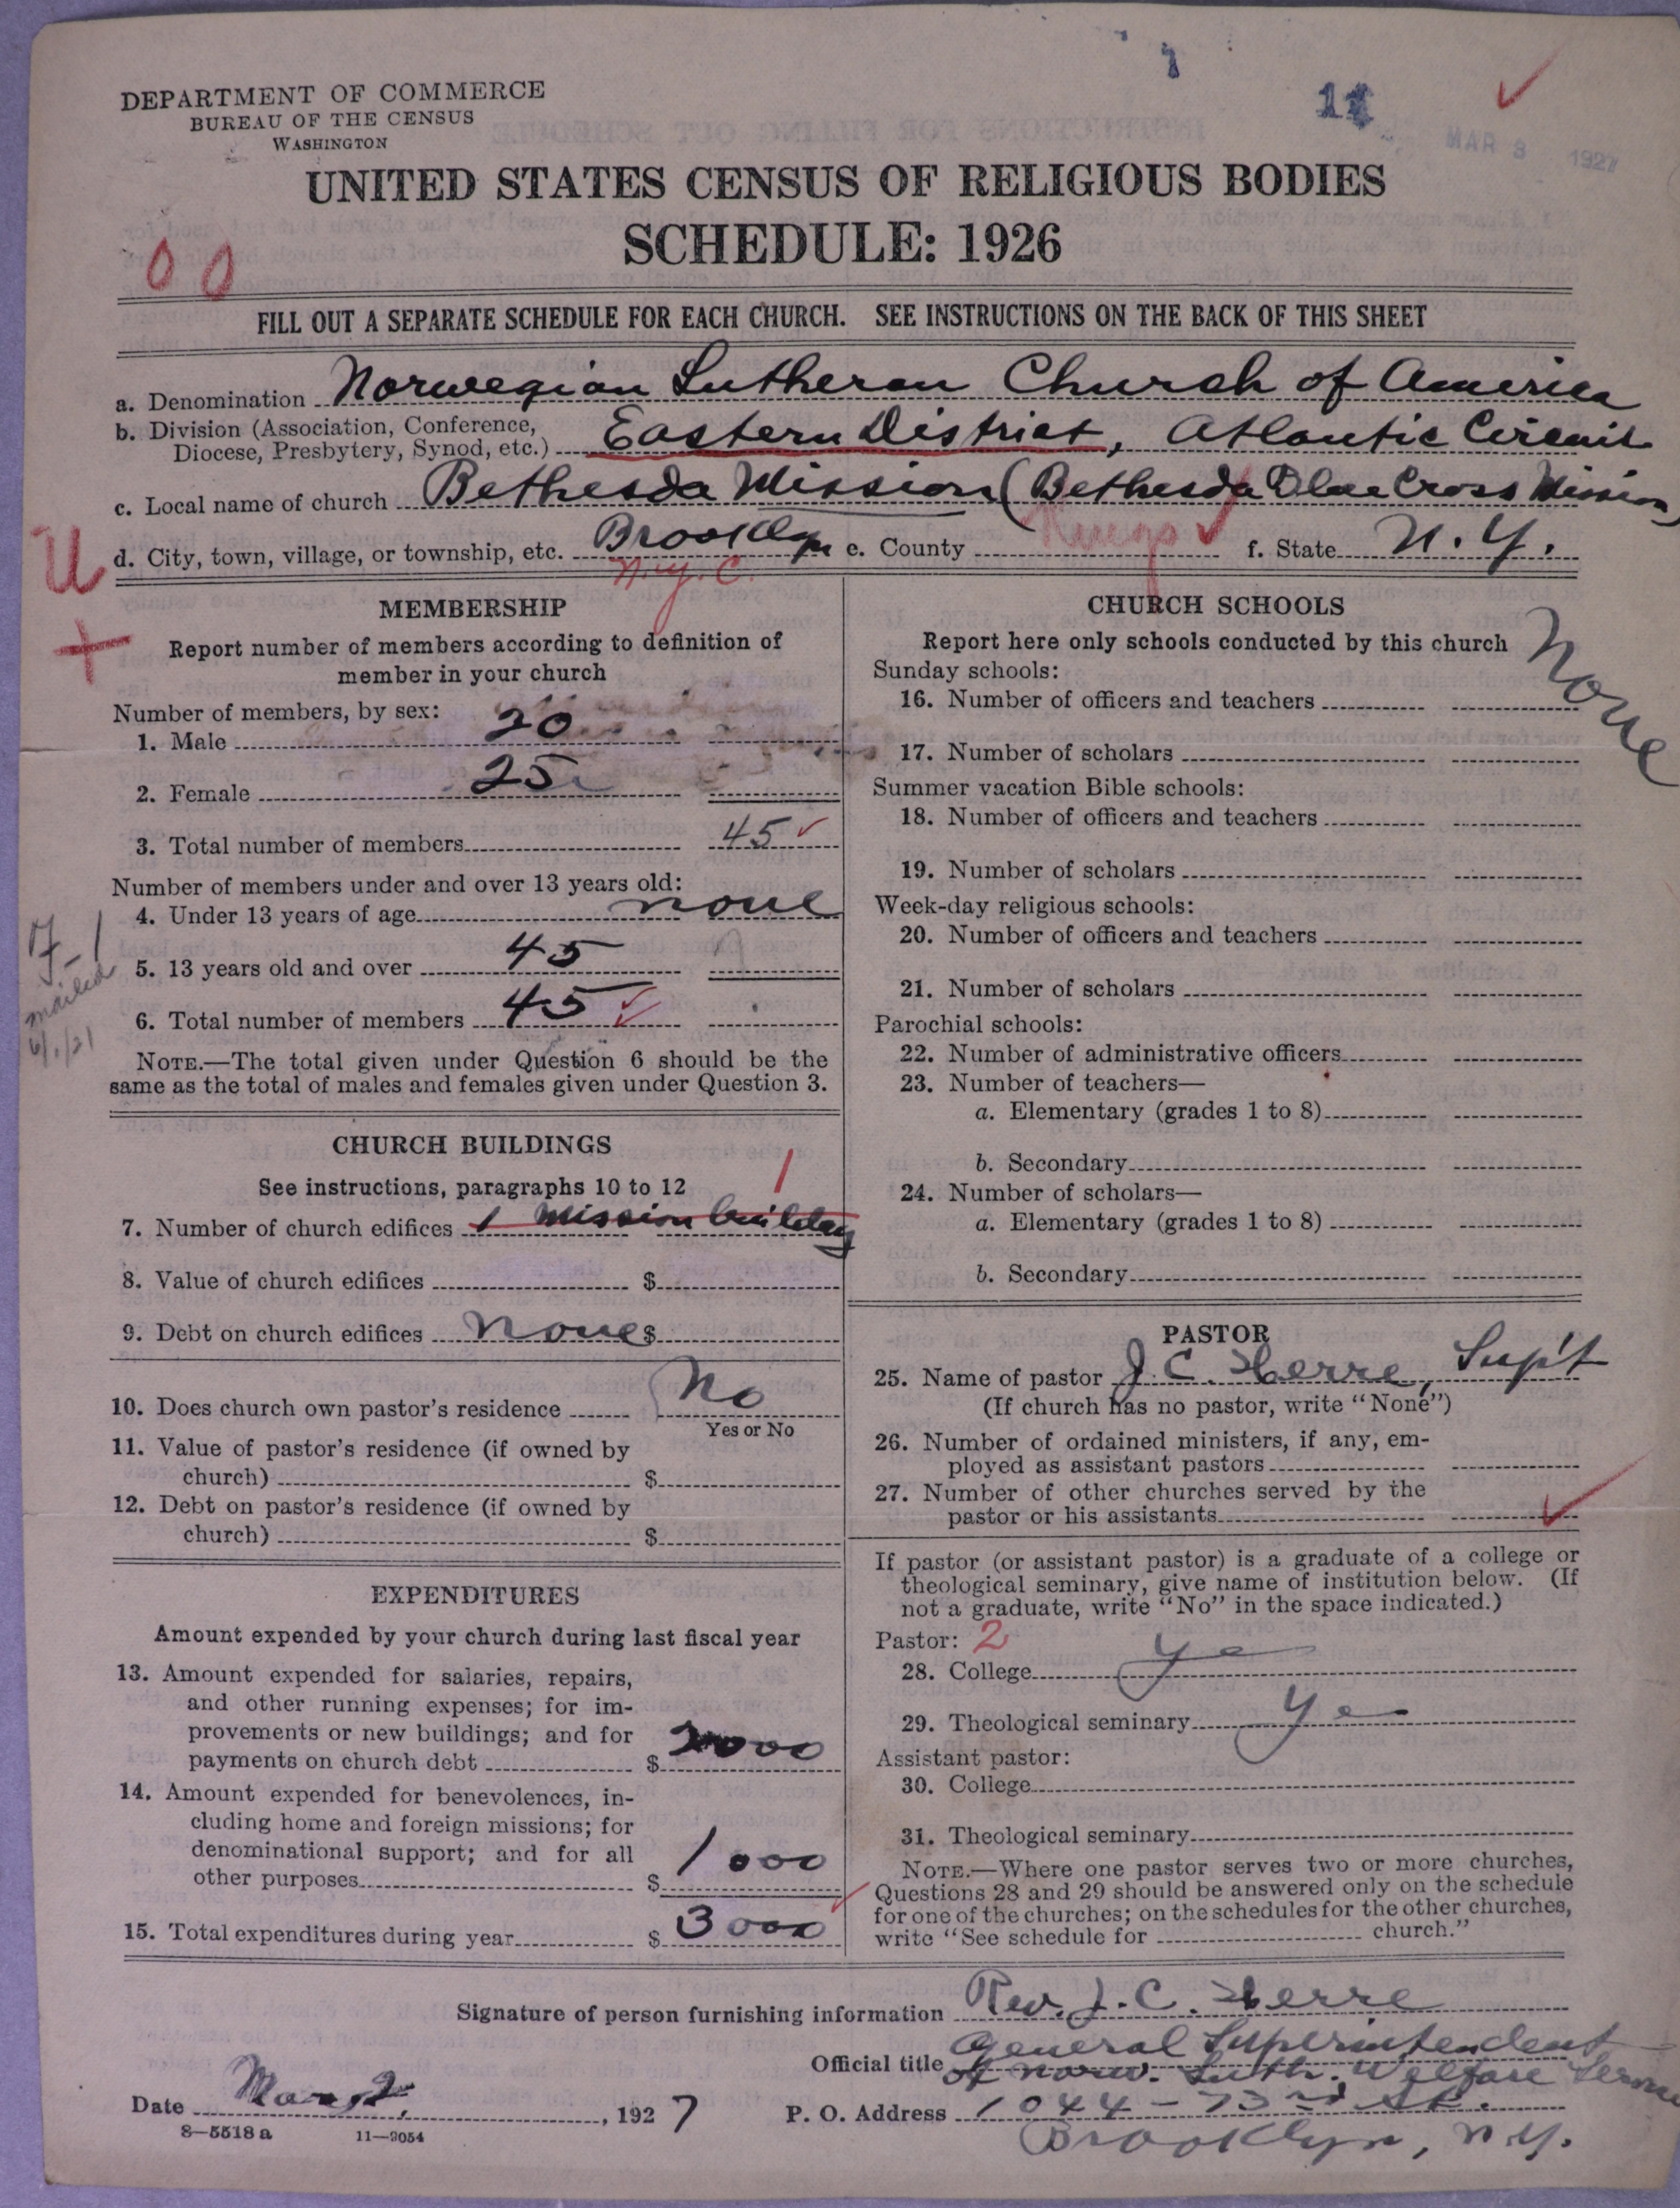 DEPARTMENT OF COMMERCE
BUREAU OF THE CENSUS
WASHINGTON
MAR 3 1927
UNITED STATES CENSUS OF RELIGIOUS BODIES
SCHEDULE: 1926
0 0
FILL OUT A SEPARATE SCHEDULE FOR EACH CHURCH. SEE INSTRUCTIONS ON THE BACK OF THIS SHEET
a. Denomination Norwegian Lutheran Church of America
b. Division (Association, Conference,
Diocese, Presbytery, Synod, etc.) Eastern District, Atlantic Circuit
c. Local name of church Bethesda Mission (Bethesda Blue Cross Mission)
d. City, town, village, or township, etc. Brooklyn e. County Kings f. State N.Y.
N.Y.C.
U
+
MEMBERSHIP
Report number of members according to definition of
member in your church
Number of members, by sex:
1. Male 20
2. Female 25
3. Total number of members 45
Number of members under and over 13 years old:
4. Under 13 years of age none
5. 13 years old and over 45
6. Total number of members 45
mailed
NOTE.—The total given under Question 6 should be the
same as the total of males and females given under Question 3.
CHURCH BUILDINGS
See instructions, paragraphs 10 to 12
1
7. Number of church edifices 1 Mission building
8. Value of church edifices $
9. Debt on church edifices None $
10. Does church own pastor's residence No
Yes or No
11. Value of pastor's residence (if owned by
church) $
12. Debt on pastor's residence (if owned by
church) $
EXPENDITURES
Amount expended by your church during last fiscal year
13. Amount expended for salaries, repairs,
and other running expenses; for im-
provements or new buildings; and for
payments on church debt $ 2000
14. Amount expended for benevolences, in-
cluding home and foreign missions; for
denominational support; and for all
other purposes $ 1000
15. Total expenditures during year $ 3000
CHURCH SCHOOLS
Report here only schools conducted by this church
None
Sunday schools:
16. Number of officers and teachers
17. Number of scholars
Summer vacation Bible schools:
18. Number of officers and teachers
19. Number of scholars
Week-day religious schools:
20. Number of officers and teachers
21. Number of scholars
Parochial schools:
22. Number of administrative officers
23. Number of teachers—
a. Elementary (grades 1 to 8)
b. Secondary
24. Number of scholars—
a. Elementary (grades 1 to 8)
b. Secondary
PASTOR
25. Name of pastor J. C. Herre, Sup't
(If church has no pastor, write "None")
26. Number of ordained ministers, if any, em-
ployed as assistant pastors
27. Number of other churches served by the
pastor or his assistants
If pastor (or assistant pastor) is a graduate of a college or
theological seminary, give name of institution below. (If
not a graduate, write "No" in the space indicated.)
Pastor: 2
28. College Ye
29. Theological seminary Ye
Assistant pastor:
30. College
31. Theological seminary
NOTE.—Where one pastor serves two or more churches,
Questions 28 and 29 should be answered only on the schedule
for one of the churches; on the schedules for the other churches,
write "See schedule for church."
Signature of person furnishing information Rev. J. C. Herre
Official title General Superintendent
of Norw. Luth. Welfare
Date Mar 2, 1927
P. O. Address 1044 - 73rd St.
Brooklyn, N.Y.
8—5518 a 11—9054